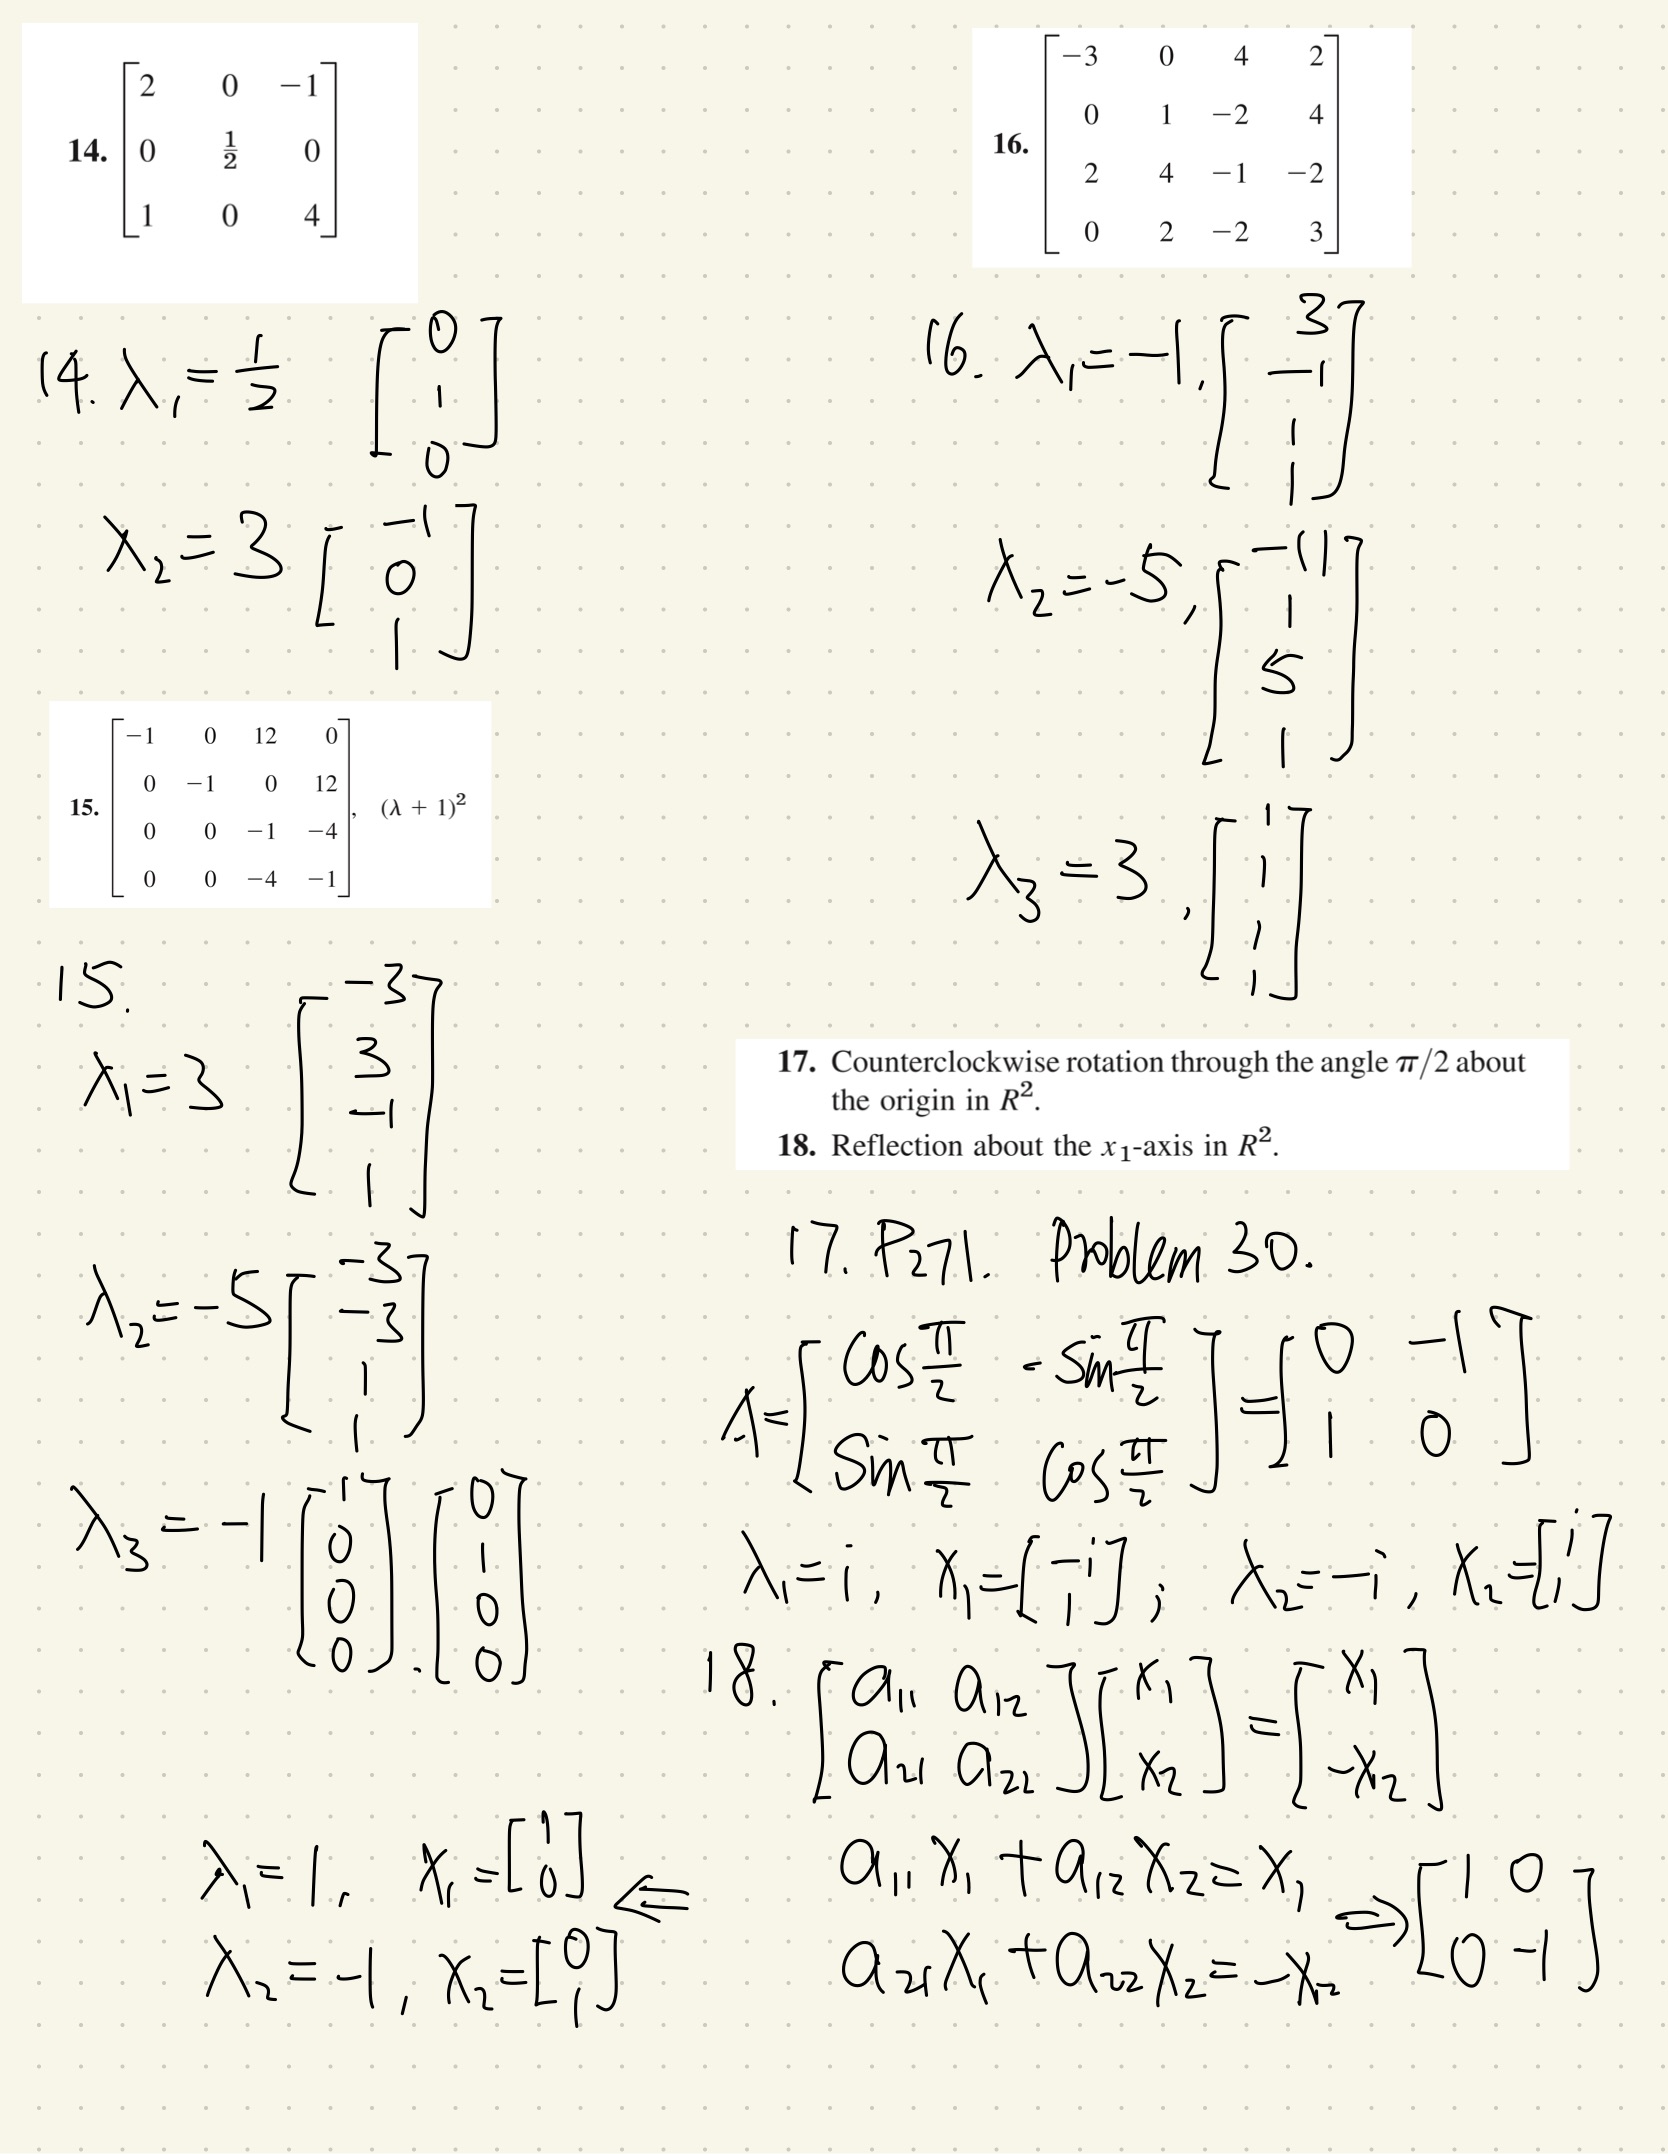 14. [ 2 0 −1
0 1/2 0
1 0 4 ]
14. λ₁ = 1/2 [ 0
1
0 ]
λ₂ = 3 [ −1
0
1 ]
15. [ −1 0 12 0
0 −1 0 12
0 0 −1 −4
0 0 −4 −1 ], (λ + 1)²
15.
λ₁ = 3 [ −3
3
−1
1 ]
λ₂ = −5 [ −3
−3
1
1 ]
λ₃ = −1 [ 1
0
0
0 ] . [ 0
1
0
0 ]
16. [ −3 0 4 2
0 1 −2 4
2 4 −1 −2
0 2 −2 3 ]
16. λ₁ = −1, [ 3
−1
1
1 ]
λ₂ = −5, [ −11
1
5
1 ]
λ₃ = 3, [ 1
1
1
1 ]
17. Counterclockwise rotation through the angle π/2 about
the origin in R².
18. Reflection about the x₁-axis in R².
17. P271. Problem 30.
A = [ Cos π/2 −Sin π/2
Sin π/2 Cos π/2 ] = [ 0 −1
1 0 ]
λ₁ = i, x₁ = [ −i
1 ] ; λ₂ = −i, x₂ = [ i
1 ]
18. [ a₁₁ a₁₂
a₂₁ a₂₂ ] [ x₁
x₂ ] = [ x₁
−x₂ ]
a₁₁x₁ + a₁₂x₂ = x₁
a₂₁x₁ + a₂₂x₂ = −x₂ ⇒ [ 1 0
0 −1 ]
⇐
λ₁ = 1, x₁ = [ 1
0 ]
λ₂ = −1, x₂ = [ 0
1 ]